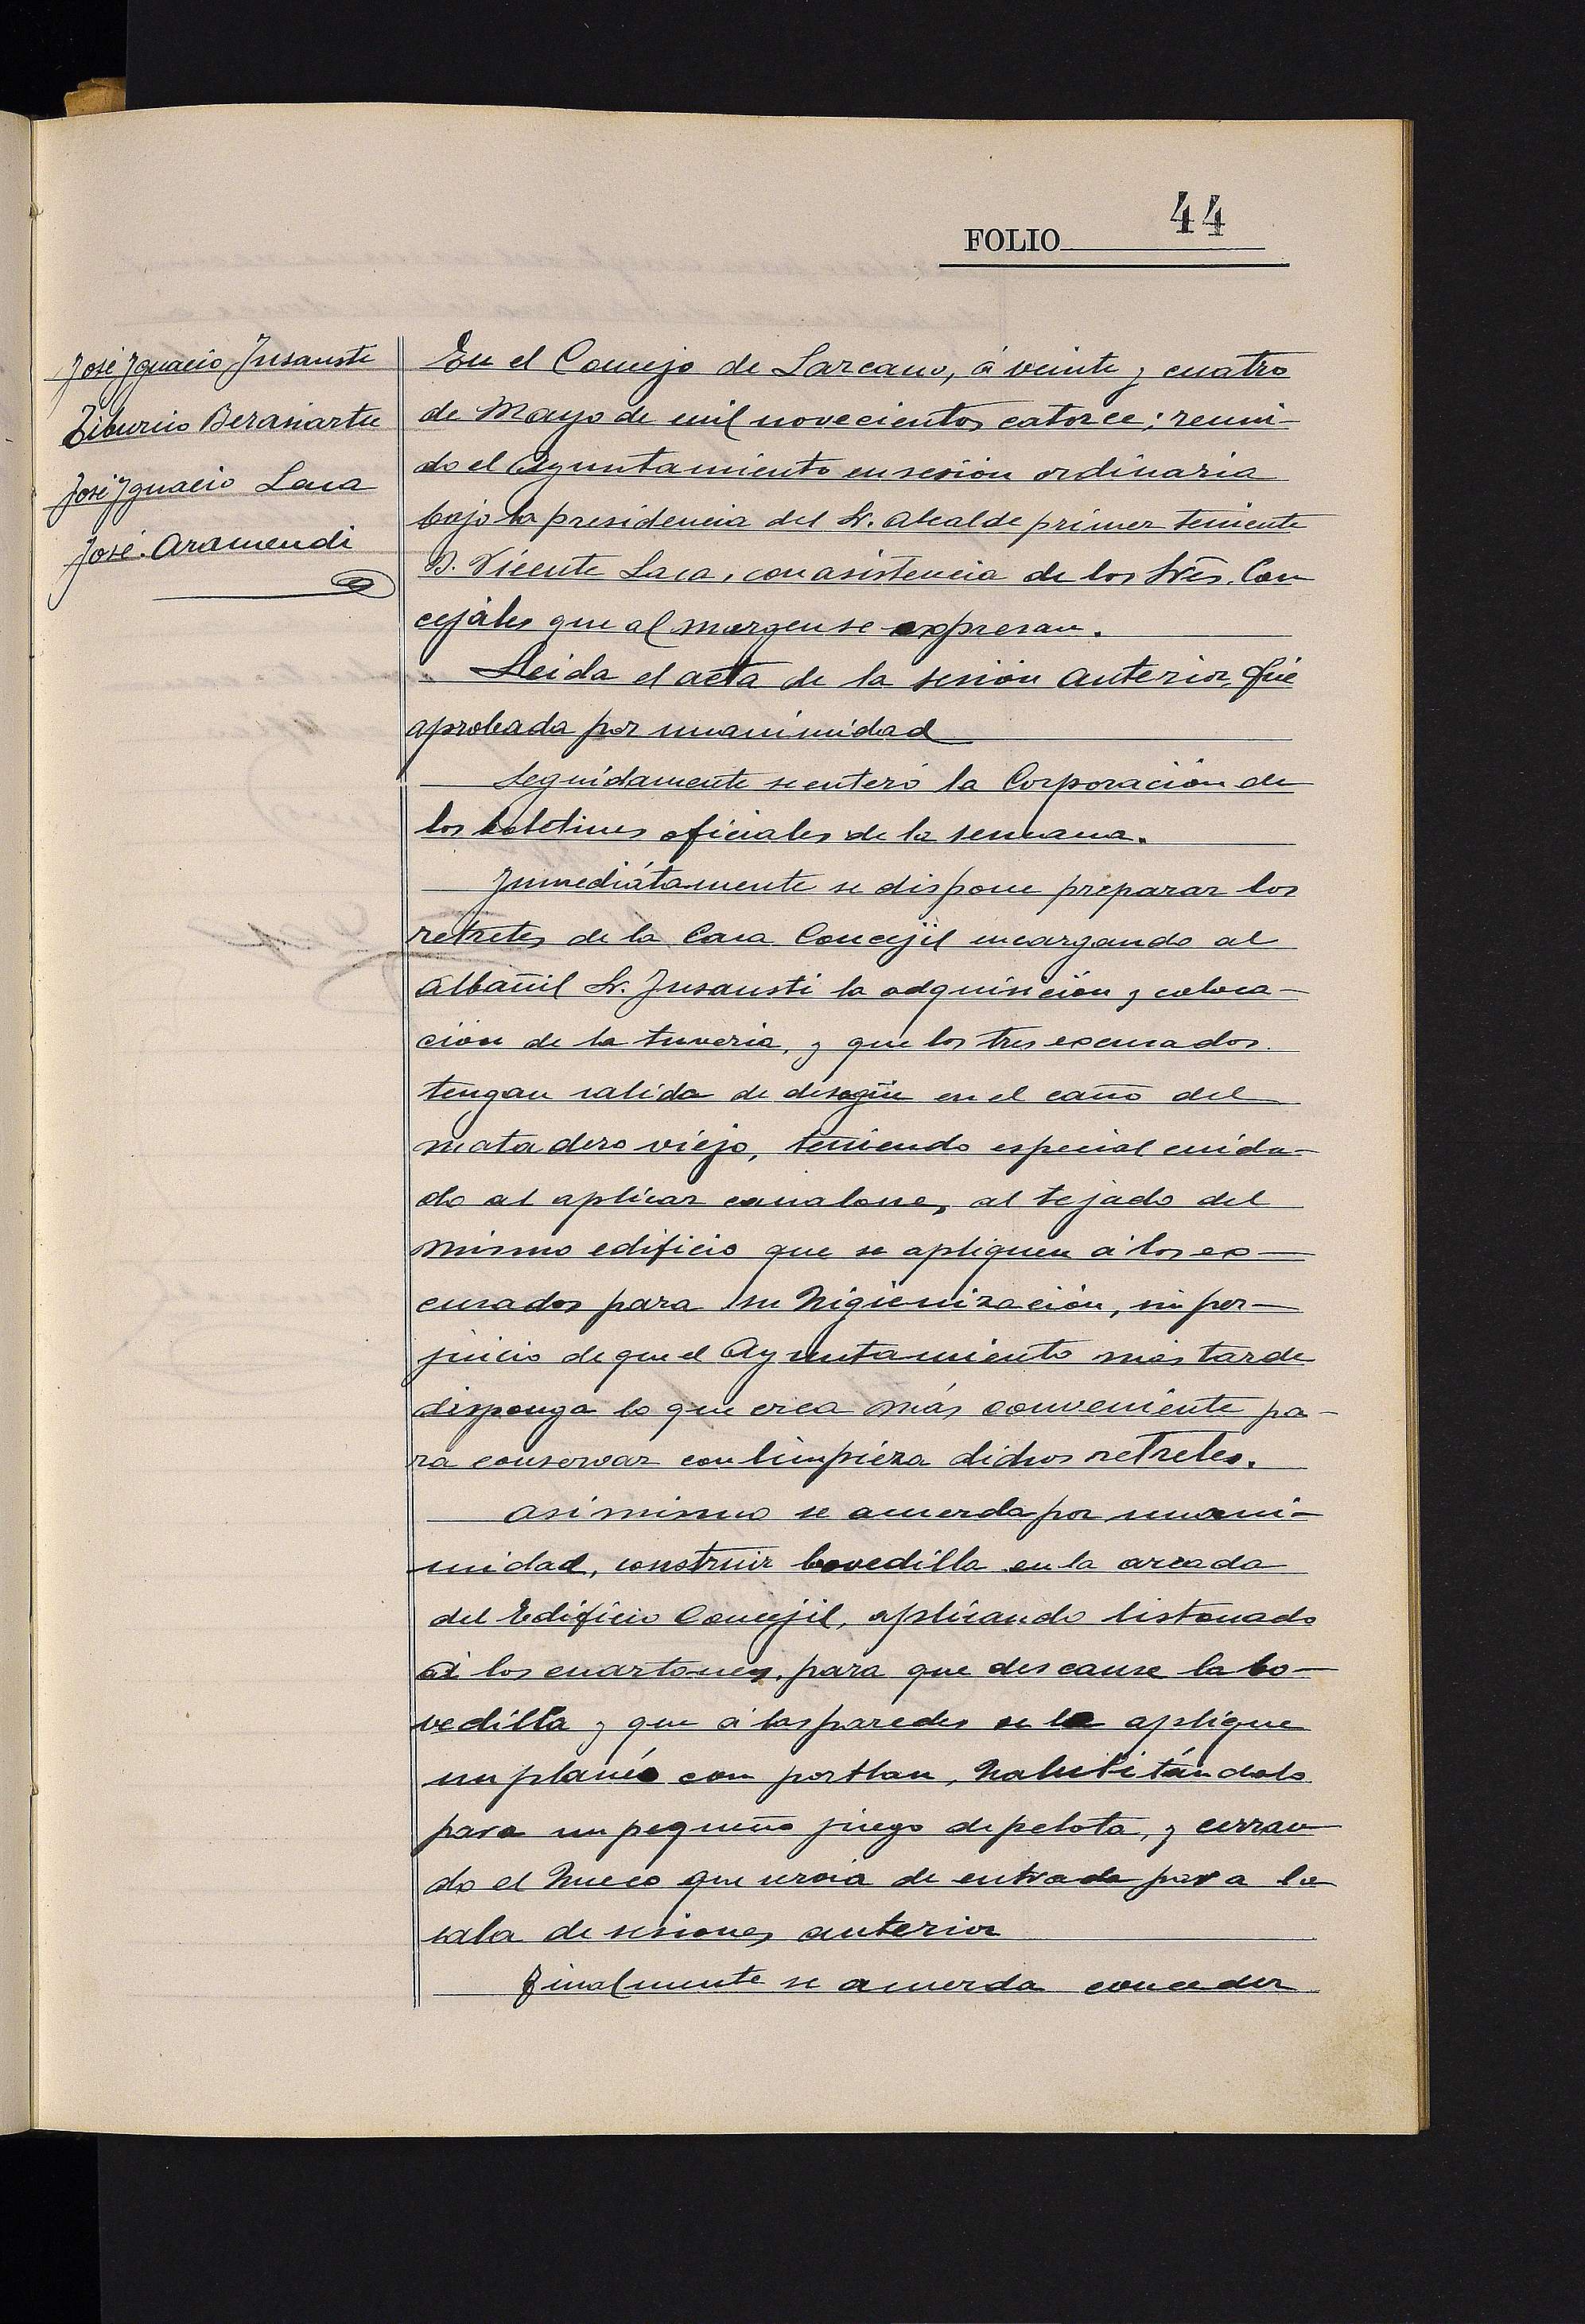 FOLIO 44
José Ignacio Insausti
Tiburcio Berasiartu
José Ignacio Lasa
José Aramendi
En el Concejo de Lazcano, á veinte y cuatro
de Mayo de mil novecientos catorce; reuni-
do el Ayuntamiento en sesión ordinaria
bajo la presidencia del Sr. Alcalde primer teniente
D. Vicente Lasa, con asistencia de los Sres. Con
cejáles que al margen se expresan.
Leida el acta de la sesión anterior, fué
aprobada por unanimidad
Seguidamente se enteró la Corporación de
los boletines oficiales de la semana.
Inmediátamente se dispone preparar los
retretes de la Casa Concejil encargando al
albañil Sr. Insausti la adquisición y coloca-
ción de la tuveria, y que los tres excusados
tengan salida de desagüe en el caño del
matadero viejo, teniendo especial cuida-
do al aplicar canalones, al tejado del
mismo edificio que se apliquen á los ex-
cusados para su higienización, sin per-
juicio de que el Ayuntamiento más tarde
disponga lo que crea más conveniente pa-
ra conservar con limpieza dichos retretes.
Asi mismo se acuerda por unani-
midad, construir bovedilla en la arcada
del Edificio Concejil, aplicando listonado
á los cuartones, para que descanse la bo-
vedilla y que á las paredes se le aplique
un planéo con portlan, habilitándolo
para un pequeño juego de pelota, y cerran
do el hueco que servia de entrada para la
sala de sesiones anterior
Finalmente se acuerda conceder